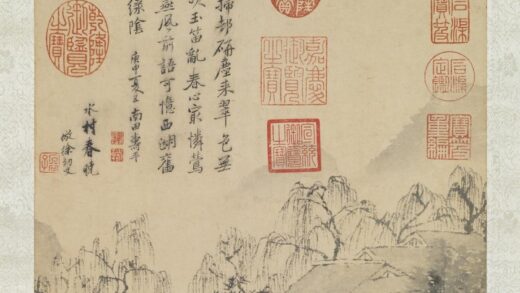 石渠寶笈
石渠定鑑
寶笈重編
嘉慶御覽之寶
宣統御覽之寶
掃却研塵来翠色無
吹玉笛亂春心最憐鶯
燕風前語可憶西湖舊
緑陰 庚申夏五南田壽平
水村春曉
倣徐幼文
乾隆御覽之寶